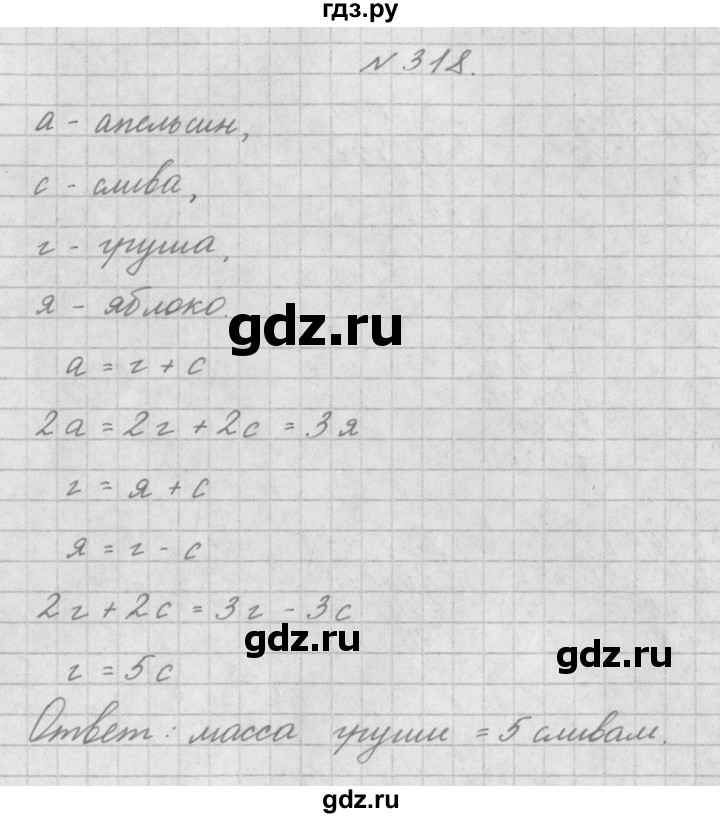 гдз.ру
№ 318.
а - апельсин,
с - слива,
г - груша,
я - яблоко.
gdz.ru
а = г + с
2а = 2г + 2с = 3я
г = я + с
я = г - с
2г + 2с = 3г - 3с
gdz.ru
gdz.ru
г = 5с
Ответ: масса груши = 5 сливам.
gdz.ru